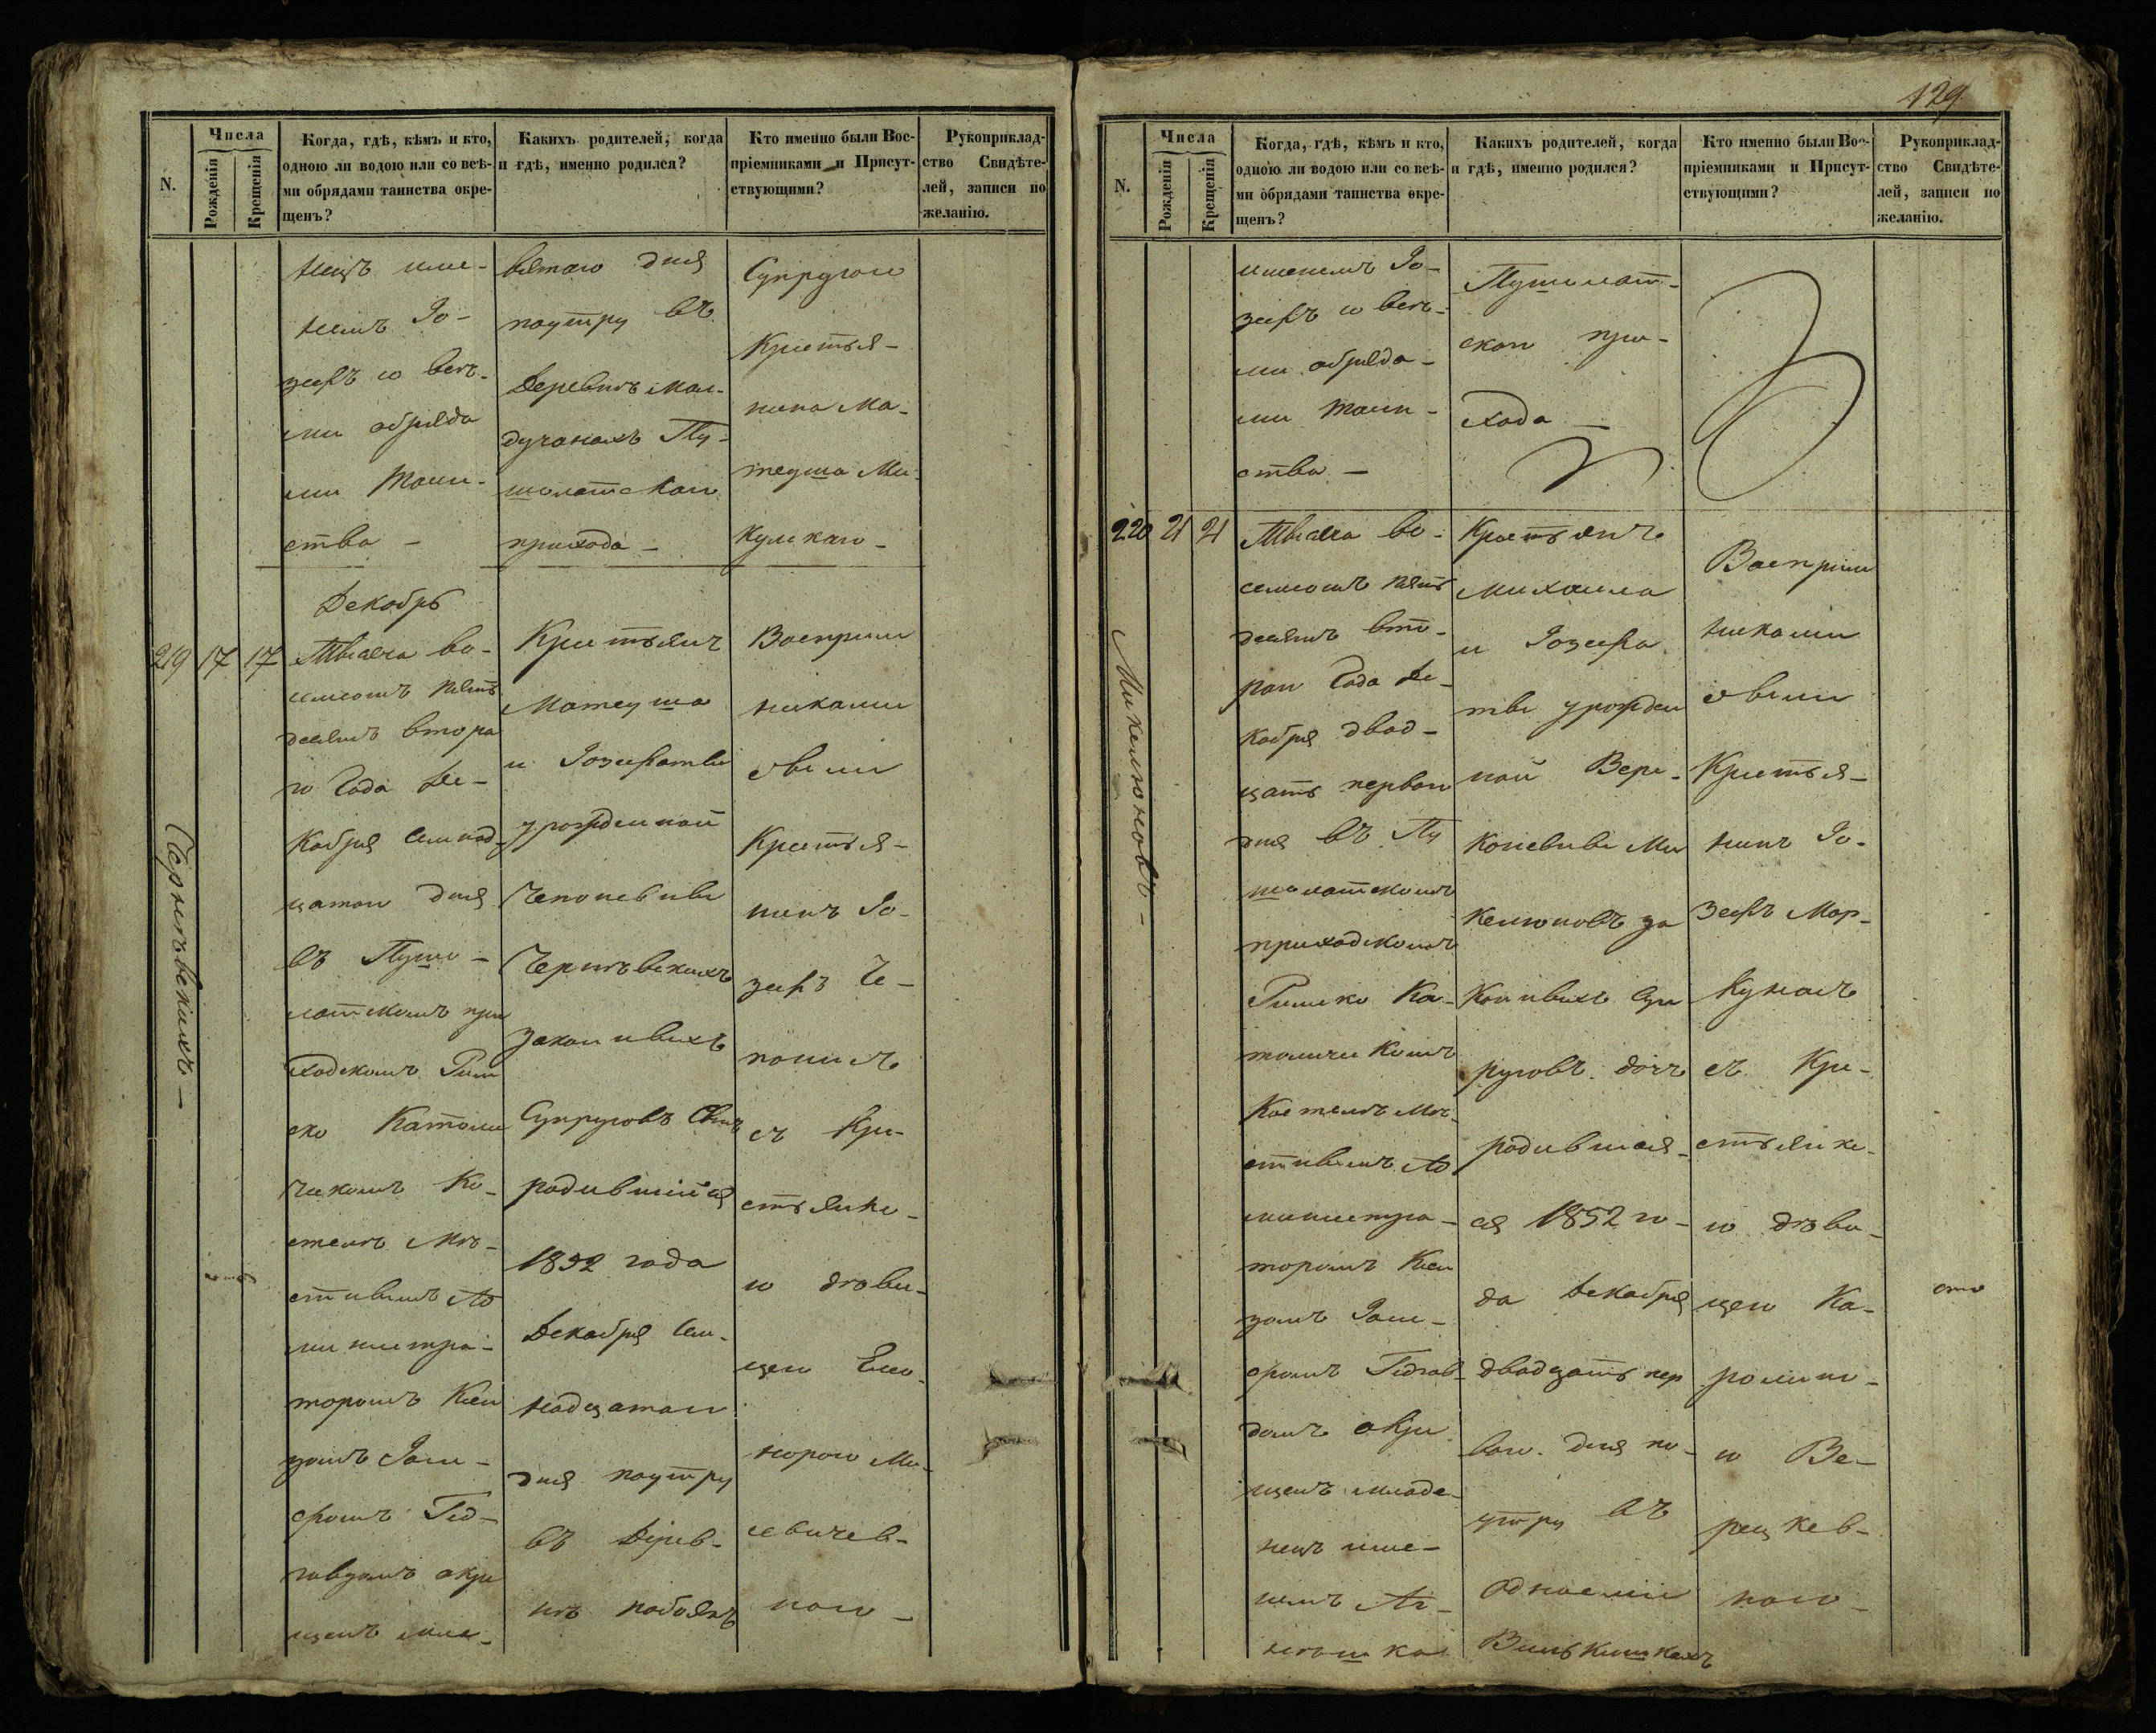 129
N.
Числа
Рожденія
Крещенія
Когда, гдѣ, кѣмъ и кто,
одною ли водою или со всѣ-
ми обрядами таинства окре-
щенъ?
Какихъ родителей, когда
и гдѣ, именно родился?
Кто именно были Вос-
пріемниками и Присут-
ствующими?
Рукоприклад-
ство Свидѣте-
лей, записи по
желанію.
нецъ име-
немъ Іо-
зефъ со всѣ-
ми обряда
ми Таин-
ства -
вятаго дня
поутру въ
Деревнѣ Мал-
дучанахъ Пу-
шолатскаго
прихода -
Супругою
Кристья-
нина Ма-
теуша Ми-
кулскаго -
Декабрь
219
17
17
Чернѣвскихъ -
Тысяча во-
семсотъ пять
десятъ втора
го Года Де-
кабря семнад-
цатого дня
въ Пушо-
латскомъ при
ходскомъ Рим
ско Католи
ческомъ Ко-
стелѣ Мѣ-
стнымъ Ад
министра-
торомъ Ксен
дзомъ
окре
щенъ мла-
Кристьянъ
Матеуша
и Іозефаты
урожденной
Чепоневны
Чернѣвскихъ
законныхъ
Супруговъ Сынъ
родившійся
1852 года
Декабря Сем-
надцатого
дня поутру
въ Дерев-
нѣ
Восприем
никами
были
Кристья-
нинъ Іо-
зефъ Че-
понисъ
съ Кри-
стьянко-
ю дѣви-
цею Елео-
норою Ми-
севичев-
ною -
N.
Числа
Рожденія
Крещенія
Когда, гдѣ, кѣмъ и кто,
одною ли водою или со всѣ-
ми обрядами таинства окре-
щенъ?
Какихъ родителей, когда
и гдѣ, именно родился?
Кто именно были Вос-
пріемниками и Присут-
ствующими?
Рукоприклад-
ство Свидѣте-
лей, записи по
желанію.
именемъ Іо-
зефъ со всѣ-
ми обряда-
ми таин-
ства -
Пушолат-
скаго при-
хода -
220
21
21
Микелюновъ -
Тысяча во-
семсотъ пять
десятъ вто-
раго Года Де-
кабря двад-
цать перваго
дня въ Пу
шолатскомъ
приходскомъ
Римско Ка-
толическомъ
Костелѣ Мѣ-
стнымъ Ад
министра-
торомъ Ксен
дзомъ
окре
щенъ младе-
нецъ име-
немъ Аг-
нѣшка
Кристьянъ
Михаила
и Іозефа
ты урожден
ной Вере-
коневны Ми
келюновъ за
конныхъ Суп
руговъ дочь
родившая-
ся 1852 го-
да Декабря
двадцать пер
ваго дня по-
утру въ
Околицѣ
Восприем
никами
были
Кристья-
нинъ Іо-
зефъ Мар-
кунасъ
съ Кри-
стьянко-
ю дѣви-
цею Ка-
ролино-
ю Ве-
рецкев-
ною -